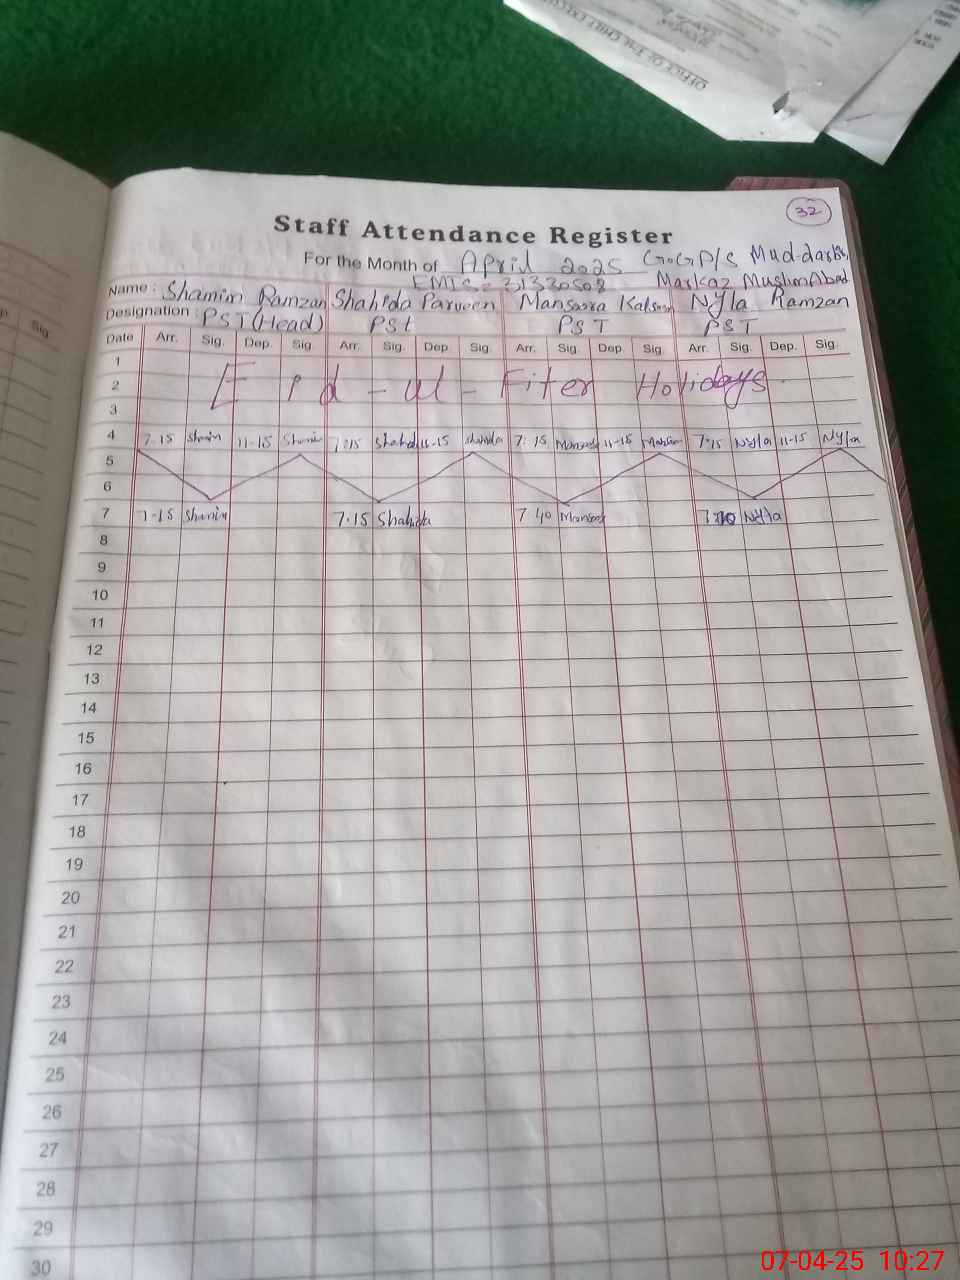 OFFICE OF THE CHIEF
32
Staff Attendance Register
For the Month of April 2025 G.G.P/S Mud-dasBs,
EMIS = 31330508 Markaz MuslimAbad
Name : Shamim Ramzan Shahida Parveen Mansoora Kalsoom Nyla Ramzan
Designation : PST (Head) PSt PST PST
Date Arr. Sig. Dep. Sig. Arr. Sig. Dep. Sig. Arr. Sig. Dep. Sig. Arr. Sig. Dep. Sig.
1
2 Eid - ul - Fiter Holidays
3
4 7.15 Shamim 11-15 Shamim 7:15 Shahida 11-15 Shahida 7:15 11-15 7:15 Nyla 11-15 Nyla
5
6
7 7-15 Shamim 7.15 Shahida 7 40 Nyla
8
9
10
11
12
13
14
15
16
17
18
19
20
21
22
23
24
25
26
27
28
29
30
Sig.
07-04-25 10:27